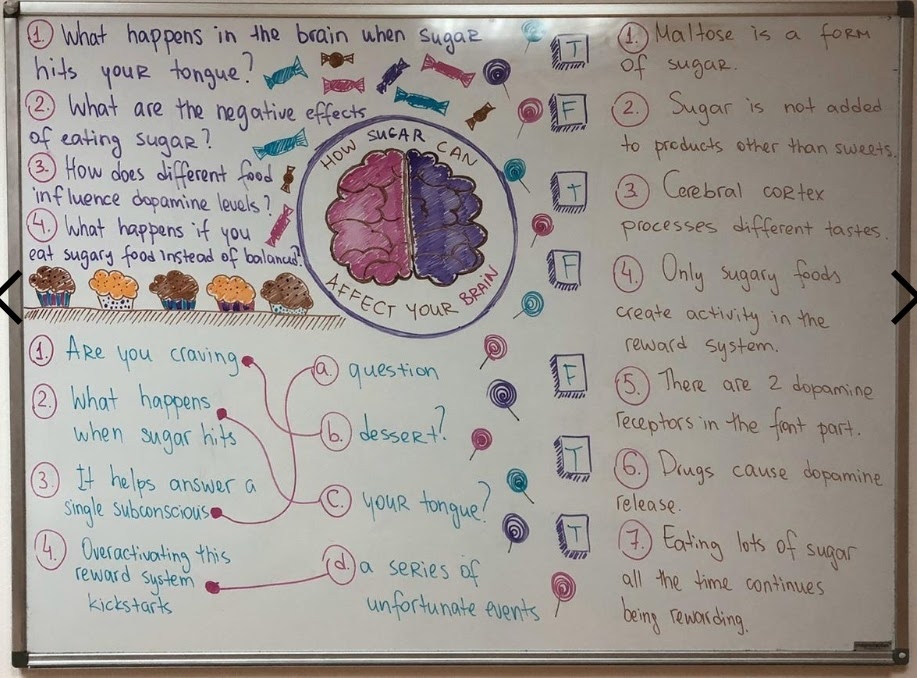 1. What happens in the brain when sugar
hits your tongue?
2. What are the negative effects
of eating sugar?
3. How does different food
influence dopamine levels?
4. What happens if you
eat sugary food instead of balanced?
HOW SUGAR CAN
AFFECT YOUR BRAIN
1. Are you craving
2. What happens
when sugar hits
3. It helps answer a
single subconscious
4. Overactivating this
reward system
kickstarts
a. question
b. dessert?
c. your tongue?
d. a series of
unfortunate events
T
F
T
F
F
T
T
1. Maltose is a form
of sugar.
2. Sugar is not added
to products other than sweets.
3. Cerebral cortex
processes different tastes.
4. Only sugary foods
create activity in the
reward system.
5. There are 2 dopamine
receptors in the front part.
6. Drugs cause dopamine
release.
7. Eating lots of sugar
all the time continues
being rewarding.